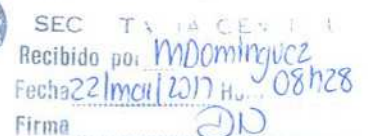 SEC
Recibido por MDomínguez
Fecha 22/mar/2017 H.. 08h28
Firma